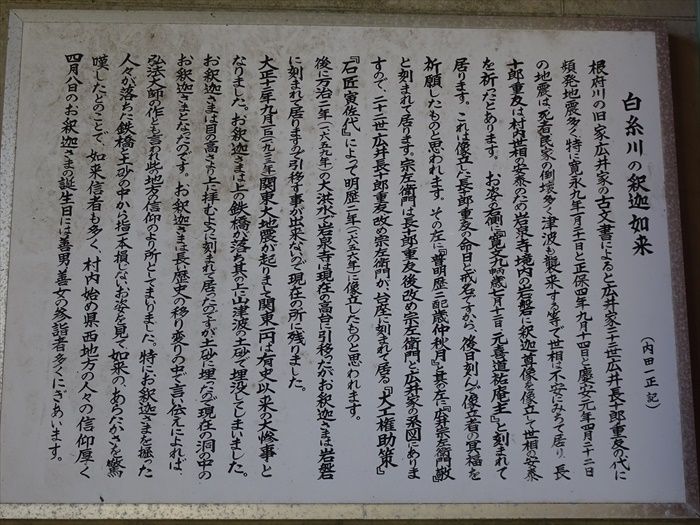 白糸川の釈迦如来
（内田一正 記）
根府川の旧家広井家の古文書によると広井家二十二世広井長十郎重友の代に
頻発地震多く特に寛永九年一月二十日と正保四年九月十四日と慶安元年四月二十二日
の地震は死者民家の倒壊多く津波も襲来する等で世相は不安にみちて居り、長
十郎重友は村内世相の安泰のため岩泉寺境内の岩磐に釈迦尊像を像立して世相の安泰
を祈ったとあります。お姿の右側に『寛文九 歳七月十二日、元喜道祐庵主』と刻まれて
居ります。これは像立した長十郎重友の命日と戒名ですから、後日刻んで像立者の冥福を
祈願したものと思われます。その左に『 明暦二 歳仲秋月』と其の左に『広井宗左衛門 』
と刻まれて居ります。宗左衛門は長十郎重友後改め宗左衛門と広井家の系図にありま
すので、二十二世広井長十郎重友改め宗左衛門が、台座に刻まれて居る『大工権助策』
『石匠寅佐代』によって明暦二年（一六五六年）に像立したものと思われます。
後に万治二年（一六五九年）の大洪水で岩泉寺は現在の高台に引移ったがお釈迦さまは岩磐
に刻まれて居りますので引移す事が出来ないので現在の所に残りました。
大正十二年九月一日（一九二三年）関東大地震が起りまして関東一円は有史以来の大惨事と
なりました。お釈迦さまは上の鉄橋が落ち其の上山津波の土砂で埋没してしまいました。
お釈迦さまは目の高さより上に拝むよう高く刻まれて居たのですが土砂に埋ったので現在の洞の中の
お釈迦さまとなったのです。お釈迦さまは長い歴史の移り変りの中で言い伝えによれば、
弘法大師の作とも言われ此地方の信仰のより所としてまいりました。特にお釈迦さまを掘った
人々が落ちた鉄橋と土砂の中から指一本損じないお姿を見て如来の、あらたかさを驚
嘆したとのことで、如来信者も多く、村内始め県西地方の人々の信仰厚く
四月八日のお釈迦さまの誕生日には善男、善女の参詣者多くにぎあいます。